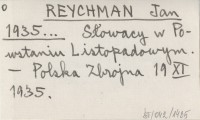 REYCHMAN Jan
1935... Słowacy w Po-
wstaniu Listopadowym.
— Polska Zbrojna 19 XI
1935.